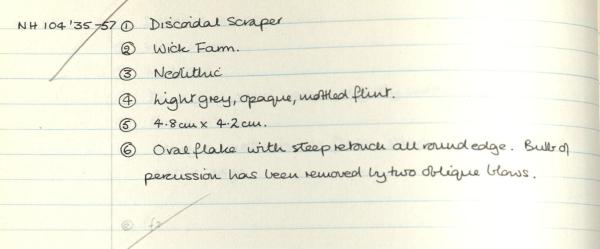 NH 104'35-57 ① Discoidal Scraper
② Wick Farm.
③ Neolithic
④ Light grey, opaque, mottled flint.
⑤ 4.8cm x 4.2cm.
⑥ Oval flake with steep retouch all round edge. Bulb of
percussion has been removed by two oblique blows.